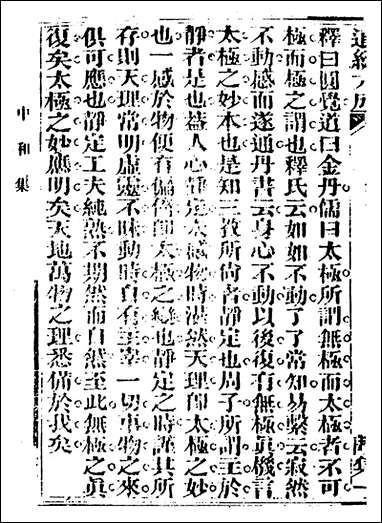 道統大成
釋曰圓覺道曰金丹儒曰太極所謂無極而太極者不可
極而極之謂也釋氏云如如不動了了常知易繫云寂然
不動感而遂通丹書云身心不動以後復有無極眞機言
太極之妙本也是知三教所尙者靜定也周子所謂主於
靜者是也葢人心靜定未感物時湛然天理卽太極之妙
也一感於物便有偏倚卽太極之變也靜定之時謹其所
存則天理常明虛靈不昧動時自有主宰一切事物之來
俱可應也靜定工夫純熟不期然而自然至此無極之眞
復矣太極之妙應明矣天地萬物之理悉備於我矣
中和集